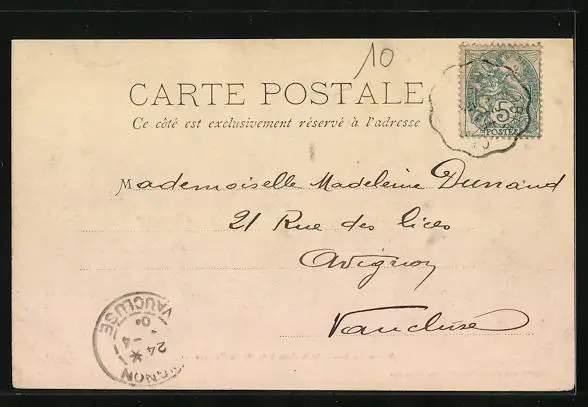 10
CARTE POSTALE
Ce côté est exclusivement réservé à l'adresse
5
POSTES
Mademoiselle Madeleine Dunand
21 Rue des lices
Avignon
Vaucluse
VAUCLUSE
24